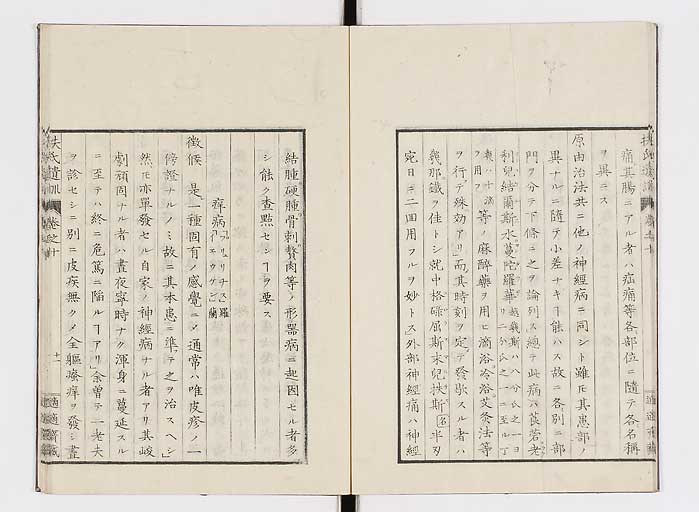 痛其腸ニアル者ハ疝痛等各部位ニ隨テ各名稱
ヲ異ニス
原由治法共ニ他ノ神經病ニ同シト雖モ其患部ノ
異ナルニ隨テ小差ナキヿ能ハス故ニ各別ニ部
門ヲ分テ下條ニ之ヲ論列ス總テ此病ハ莨菪老
利兒結爾斯水蔓陀羅華
等ノ麻醉藥ヲ用ヒ滴浴冷浴艾灸法等
ヲ行テ殊効アリ而其時刻ヲ定テ發歇スル者ハ
幾那鐵ヲ佳トシ就中格碌屈斯末兒扶斯名半刄
宛日ニ二四用フルヲ妙トス外部神經痛ハ神經
扶氏遺訓 卷之十 十一 適適齋藏
結腫硬腫骨刺贅肉等ノ形器病ニ起因セル者多
シ能ク查點センヿヲ要ス
痒病 プリュリチュス羅 イェウケン蘭
徵候 是一種固有ノ感覺ニメ通常ハ唯皮疹ノ一
傍證ナルノミ故ニ其本患ニ準テ之ヲ治スヘシ
然モ亦單發セル自家ノ神經病ナル者アリ其峻
劇頑固ナル者ハ晝夜寧時ナク渾身ニ蔓延スル
ニ至テハ終ニ危篤ニ陷ルヿアリ余曾テ一老夫
ヲ診セシニ別ニ皮疾無クメ全軀瘙痒ヲ發シ晝